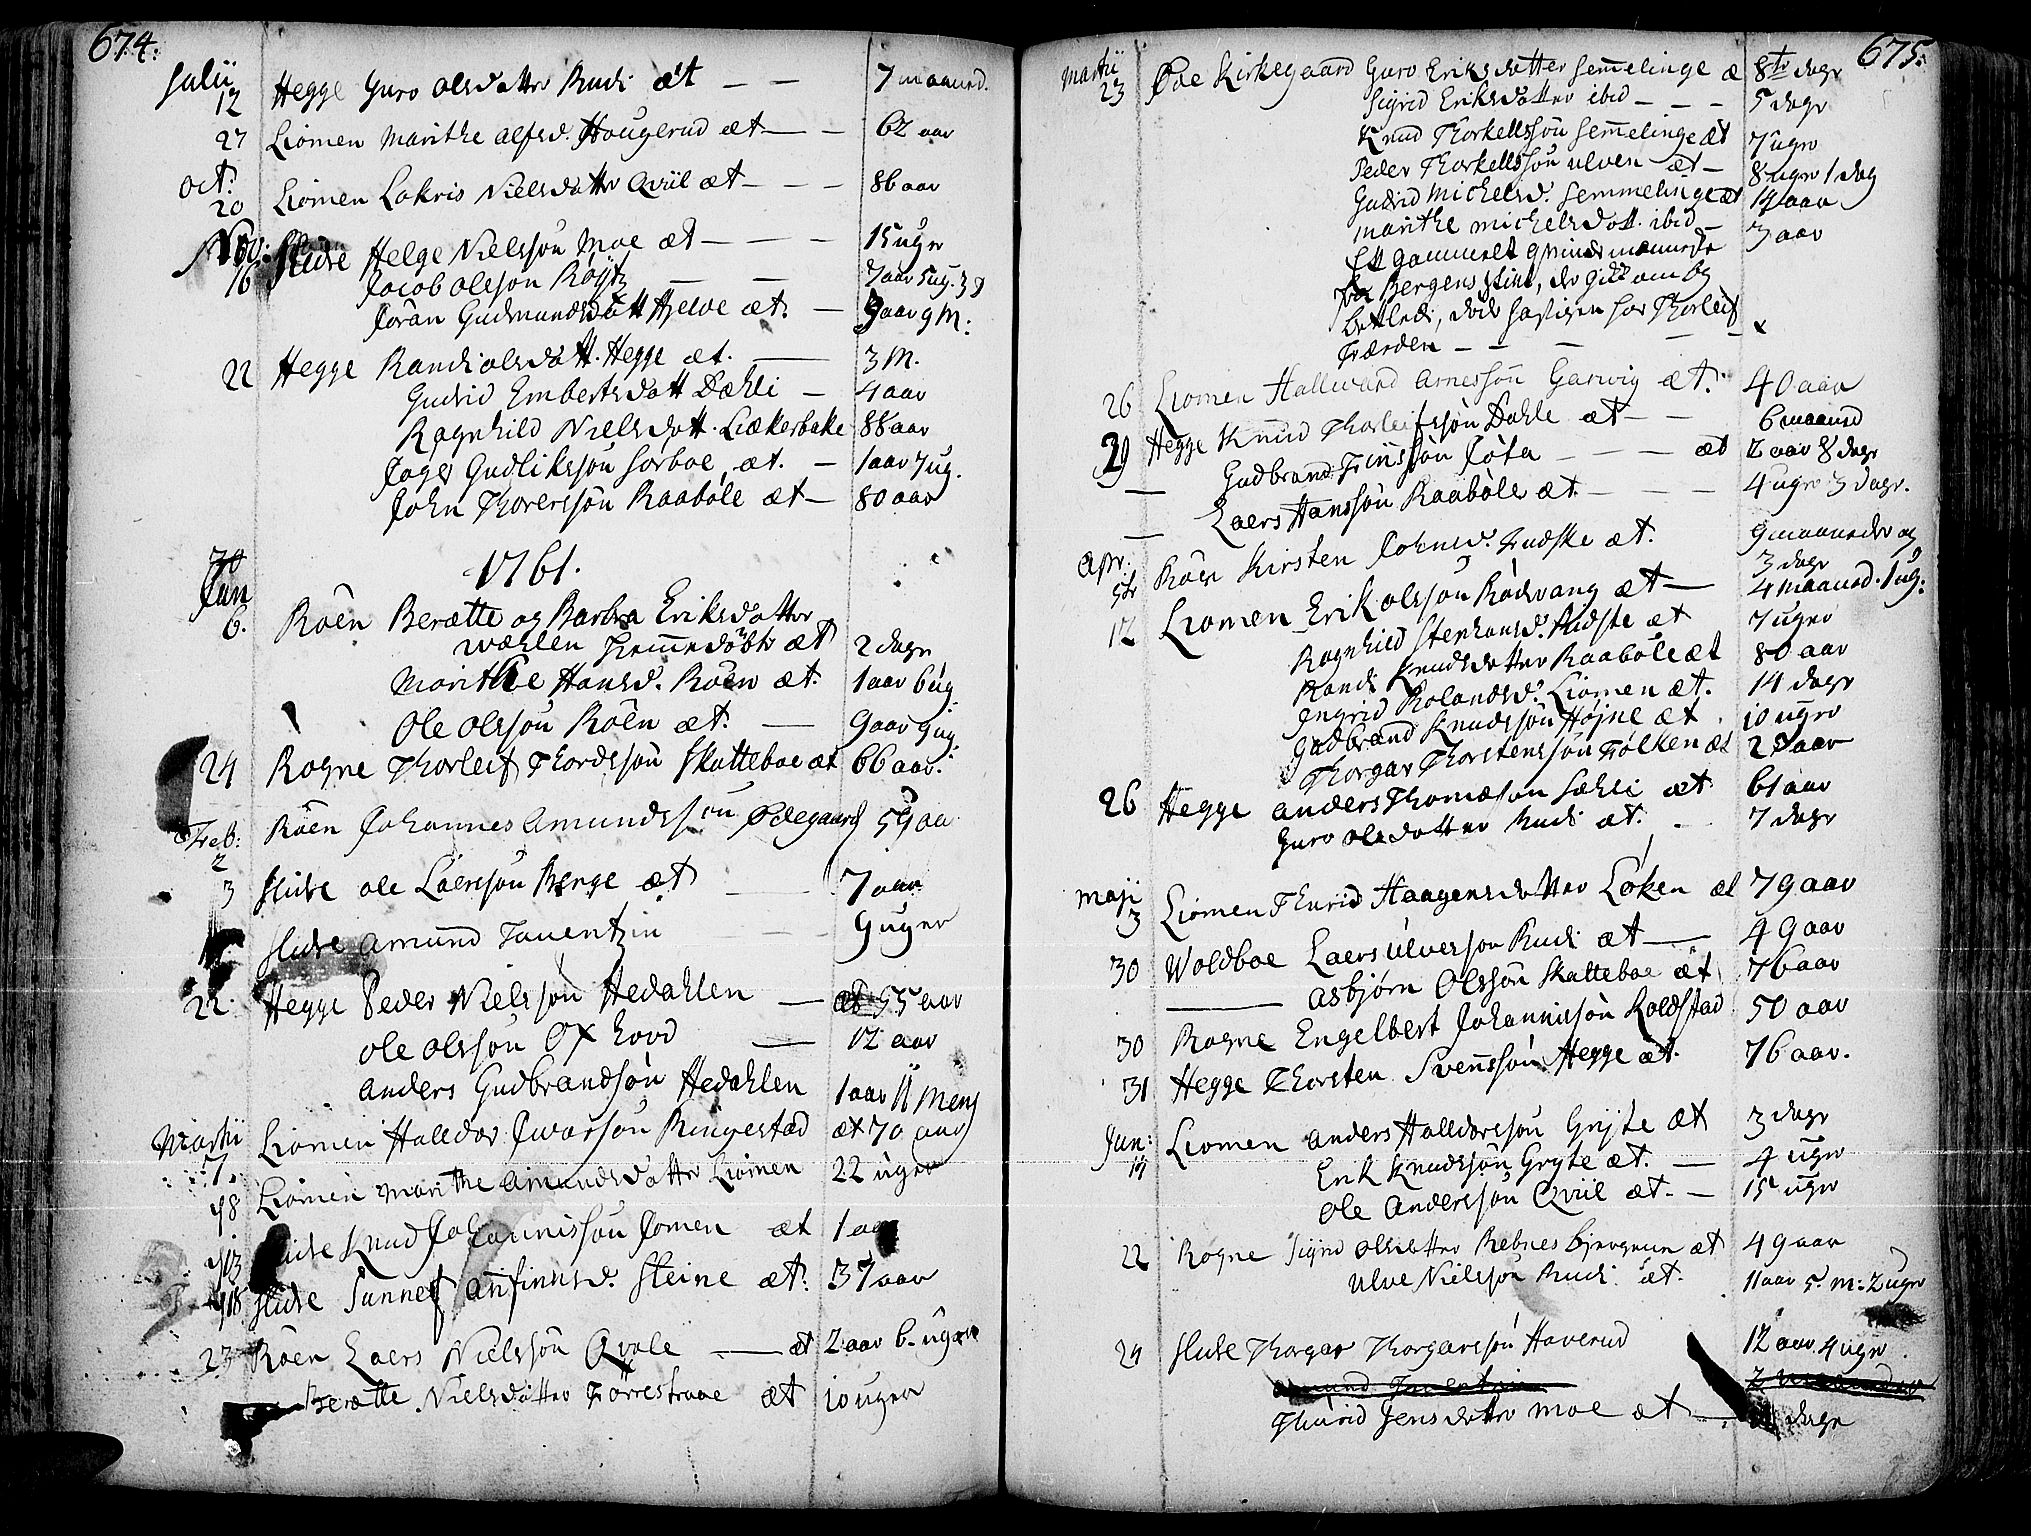 674.
Julii
12 Hegge Guro Olsdatter Rudi æt — — 7 maaned.
27 Liomen Marithe Alfsd. Hougerud æt — — 62 aar
Oct:
20 Liomen Lakris Nielsdatter Qviil æt — — — 86 aar
Nov:
16 Slidre Helge Nielssøn Moe æt — — — 15 uger
Jacob Olssøn — — 7 aar 5 ug. 3 d
Jöran Gudmundsdatt Hielve æt. — 9 aar 9 M:
22 Hegge Randi Olsdatt. Hegge æt. — 3 M.
Gudrid Embertsdatt Dæhli — 4 aar
Ragnhild Nielsdatt. Liækerbake 88 aar
Gudlikssøn Sorboe æt. — 1 aar 7 ug.
John Thorerssøn Raaböle æt — 80 aar
1761.
Jan
6. Röen Berætte og Barbra Eriksdatter
wæhlen æt 2 dage
Marithe Hansd. Röen æt. 1 aar 6 ug.
Ole Olssøn Röen æt. — 9 aar 9 ug.
24 Rogne Thorleif Thordssøn Skatteboe æt 66 aar.
Feb:
2 Röen Johannes Amundssøn Ødegaard 59 aa
3 Slidre Ole Laerssøn Berge æt — 7 aar
Slidre Amund Tauentzin — — — 9 uger
22. Hegge Peder Nielssøn Hedahlen — æt 55 aar
Ole Olssøn Oxhovd — 12 aar
Anders Gudbrandsøn Hedahlen 1 aar 11 Meng
Martii
7. Liomen Halldor Iwarsøn Ringestad æt 70 aar
8 Liomen Marithe Amundsdatter Liomen 22 uger
13 Slidre Knud Johannissøn Jomen æt 1 aar
18 Slidre Sunnef Anfinnsd. Steine æt. 37 aar
23 Röen Laers Nielssøn Qvale — æt 2 aar 6. uger
Berætte Nielsdatter Förrestraae æt 10 uger
675.
Martii
23 Øve Kirkegaard Guro Eriksdatter Semmelinge æ 8te dage
Sigrid Eriksdatter ibid — — — 5 dage
Knud Thorkellssøn Semmelinge æt 7 uger
Peder Thorkellssøn Ulven æt — 8 uger 1 dag
Gudrid Michelsd. Semmelinge æt 14 aar
Marithe Michelsdatt. ibid — 3 aar
Et gammelt qvindemenneske
fra Bergens stift, der gik om og
betlede, döde hastigen hos Thorleif
Færden — — — — —
26 Liomen Hallward Arnessøn Garwig æt. 40 aar
29 Hegge Knud Thorleifssøn Dahle æt — — 6 maaned
— Gudbrand Finssøn Jota — — — æt 2 aar 8 dage
— Laers Hanssøn Raaböle æt — — — 4 uger 3 dage.
Apr.
5te Röen Kirsten Johnsd. Fudske æt. 9 maaneder og
3 dage
12 Liomen Erik Olssøn Rødvang æt — 4 maaned. 1 ug.
Ragnhild Stephansd. Rudste æt 7 uger
Randi Knudsdatter Raaböle æt 80 aar
Ingrid Rolandsd. Liomen æt. 14 dage
Gudbrand Knudssøn Højne æt 10 uger
Thorgar Thorstenssøn Fölken æt 2 aar
26 Hegge Anders Thomæsøn Sæhli æt 61 aar
Guro Olsdatter Rudi æt. — 7 dage
Maji
3 Liomen Thurid Haagensdatter Løken æt 79 aar
30 Woldboe Laers Ulverson Rudi æt — 49 aar
— Asbjørn Olssøn Skatteboe æt 76 aar
30 Rogne Engelbert Johannissøn Roldstad 50 aar
31 Hegge Thorsten Svenssøn Hegge æt. 76 aar.
Jun:
14 Liomen Anders Halldorssøn Gryte æt 3 dage
Erik Knudssøn Gryte æt. — 4 uger
Ole Anderssøn Qviil æt. — 15 uger
22 Rogne Signe Olsdatter Rebnes bjergene æt 49 aar
Ulve Nielssøn Rudi æt. 11 aar 5 m: 2 uger
24 Slidre Thorgar Thorgarssøn Haverud 12 aar 4 uger
Amund Tauentzin
Thurid Jensdatter Moe æt — dage